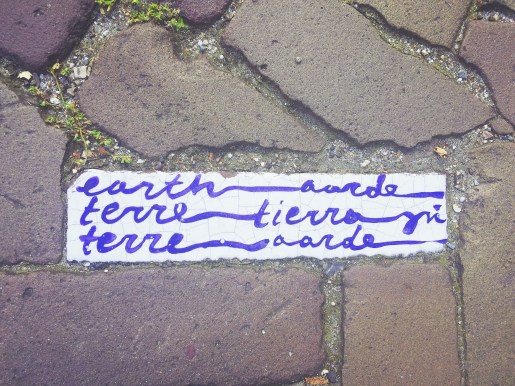 earth aarde
terre tierra
terre aarde